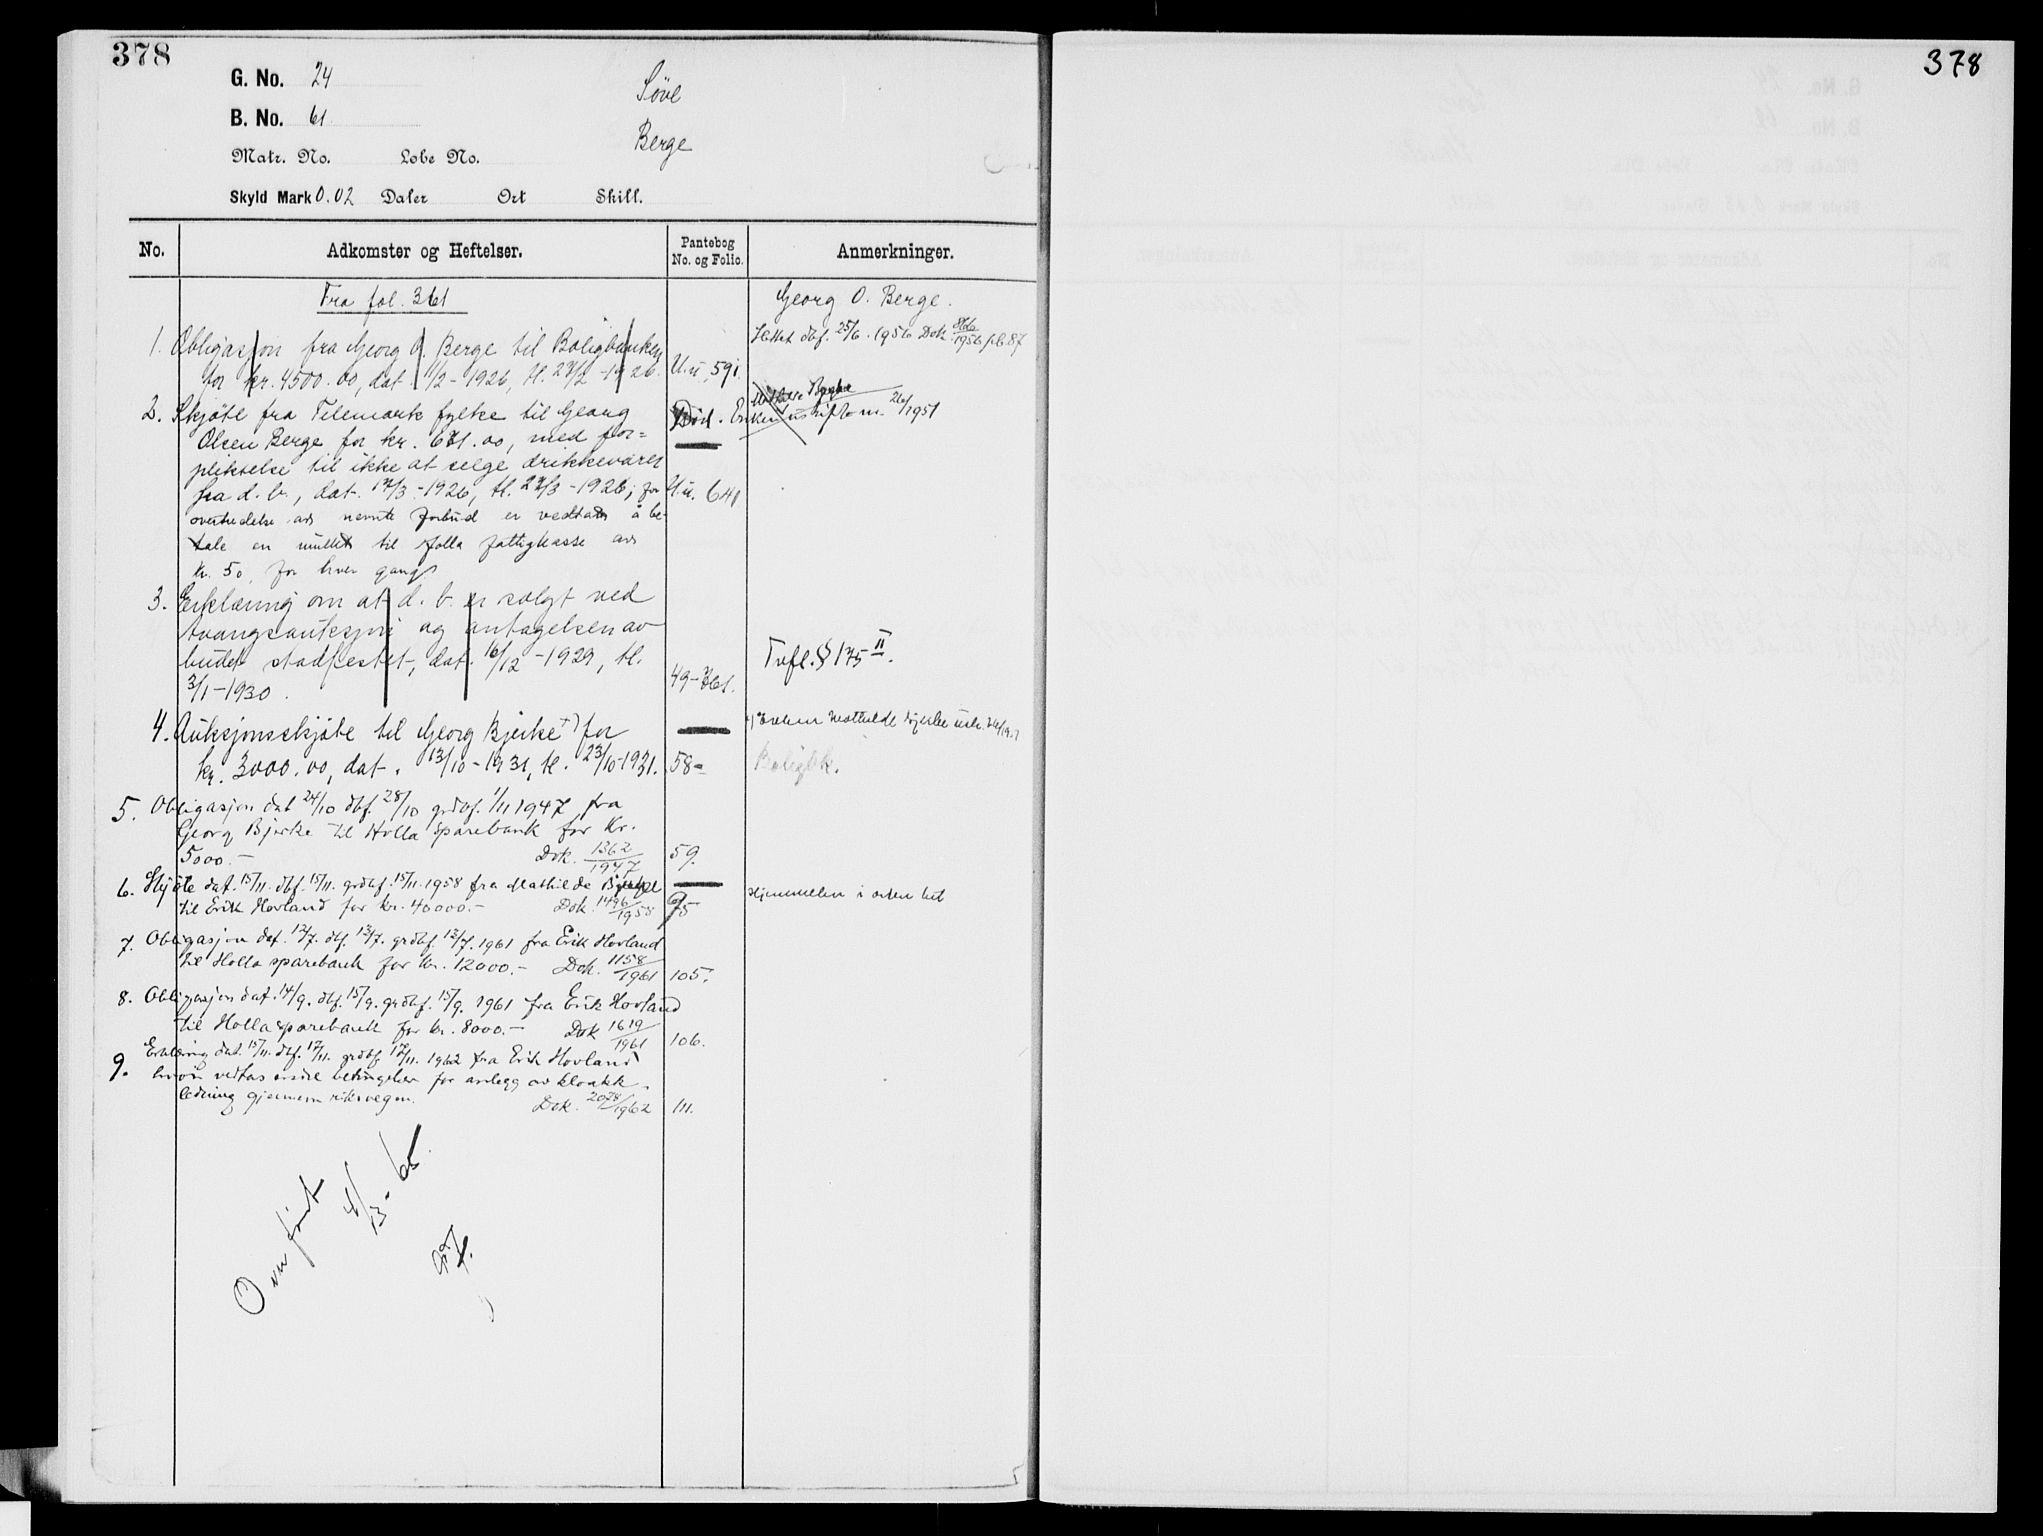 378
378
G. No. 24
Söve
B. No. 61
Berge
Matr. No. Løbe No.
Skyld Mark 0.02 Daler Ort Skill.
No. Adkomster og Heftelser. Pantebog No. og Folio. Anmerkninger.
Fra fol. 361
Georg O. Berge.
Slettet dbf. 25/6. 1956 Dok. 1956 pb. 87
1. Obligasjon fra Georg O. Berge til Boligbanken
for kr. 4500.00, dat. 1/2-1926, tl. 27/2-1926. U.u. 591
2. Skjöte fra Telemark fylke til Georg
Död. Enken 1951
Olsen Berge for kr. 671.00, med for=
pliktelse til ikke at selge drikkevarer
fra d. b., dat. 17/3-1926, tl. 27/3-1926; for U.u. 641
overtredelse av nevnte forbud er vedtatt å be-
tale en mulkt til Holla fattigkasse av
kr. 50, for hver gang.
3. Erklæring om at d. b. er solgt ved
tvangsauksjon og antagelsen av
budet stadfestet, dat. 16/12-1929, tl.
3/1-1930. 49-361.
Tvfl. § 175 II.
4. Auksjonsskjöte til Georg Bjerke +) for
+) Enken Mathilde Bjerke usk.
kr. 3000.00, dat. 13/10-1931, tl. 23/10-1931. 58=
Boligbk.
5. Obligasjon dat 24/10 dbf. 28/10 grdbf. 1/11 1947 fra
Georg Bjerke til Holla Sparebank for kr.
5000.- Dok. 1362/1947 59.
6. Skjöte dat. 15/11. dbf. 15/11. grdbf. 15/11. 1958 fra Mathilde Bjerke
til Erik Hovland for kr. 40000.- Dok. 1496/1958 95
Hjemmelen i orden
7. Obligasjon dat. 12/7. dbf. 13/7. grdbf. 13/7. 1961 fra Erik Hovland
til Holla sparebank for kr. 12000.- Dok. 1158/1961 105.
8. Obligasjon dat. 14/9. dbf. 15/9. grdbf. 15/9. 1961 fra Erik Hovland
til Holla sparebank for kr. 8000.- Dok 1619/1961 106.
9. Erklæring dat. 15/11. dbf. 17/11. grdbf. 17/11. 1962 fra Erik Hovland
hvori vedtas endel betingelser for anlegg av kloakk-
ledning gjennem riksvegen. Dok. 2078/1962 111.
Overført
1/3-65